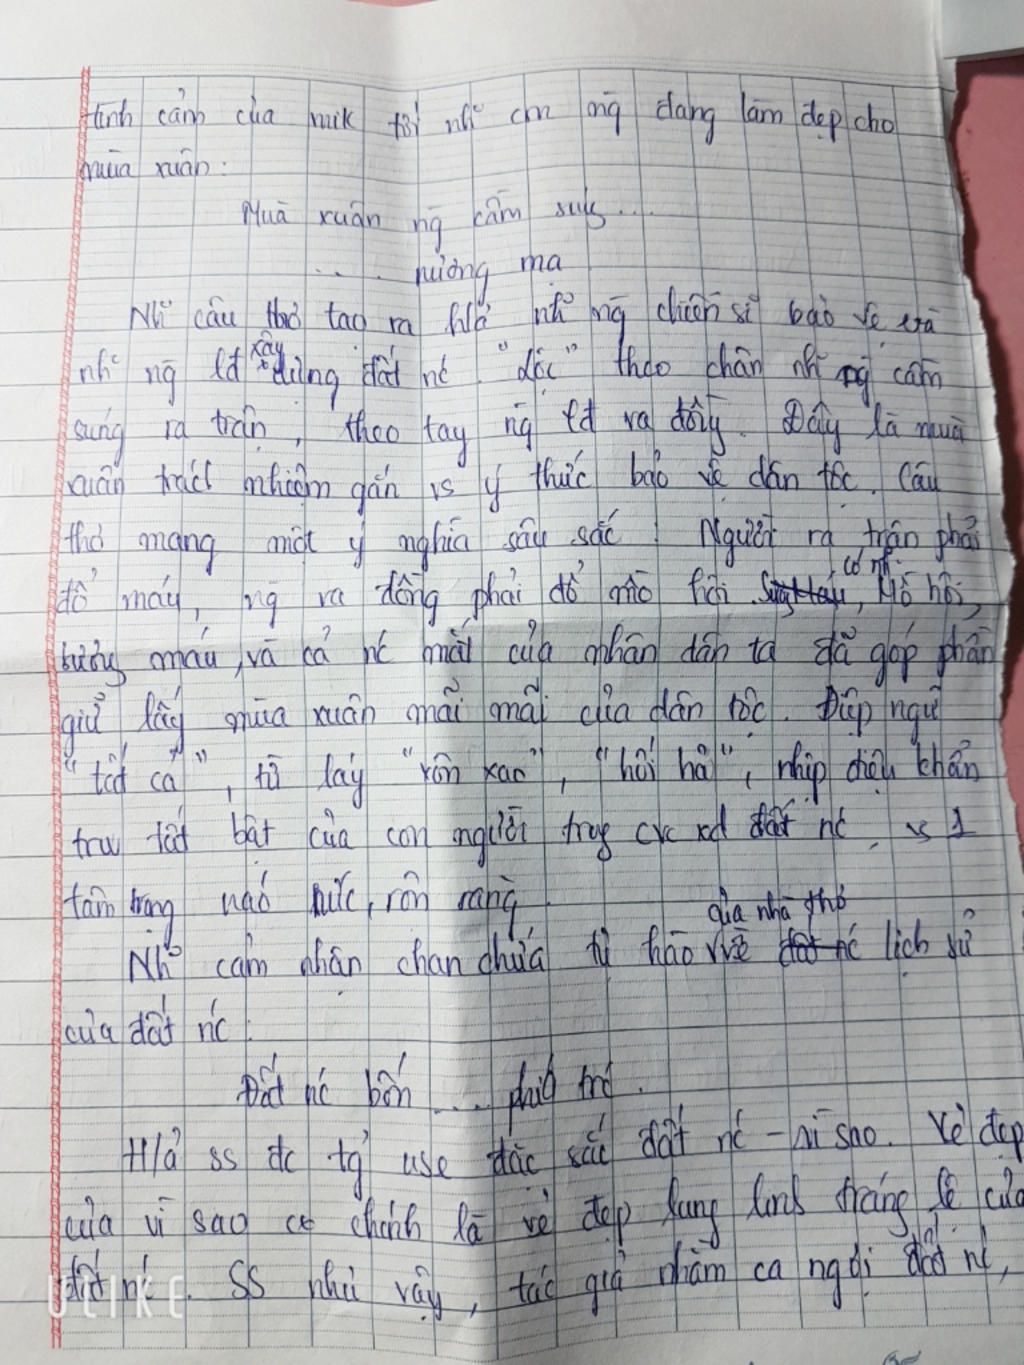 tình cảm của mik tới nhữ cm ng đang làm đẹp cho
mùa xuân:
Muà xuân ng cầm súng...
.... nương mạ
Nhữ câu thơ tạo ra h/ả nhữ ng chiến sĩ bảo vệ và
nhữ ng lđ xây dựng đất nc. "lộc" theo chân nhữ ng cầm
súng ra trận, theo tay ng lđ ra đồng. Đây là muà
xuân trách nhiệm gắn vs ý thức bảo vệ dân tộc. Câu
thơ mang một ý nghĩa sâu sắc! Người ra trận phải
đổ máu, ng ra đồng phải đổ mồ hôi. có nh. Mồ hôi,
xương máu, và cả nc mắt của nhân dân ta đã góp phần
giữ lấy mùa xuân mãi mãi của dân tộc. Điệp ngữ
"tất cả", từ láy "xôn xao", "hối hả", nhịp điệu khẩn
trư tất bật của con người trog cvc xd đất nc, vs 1
tâm trạng naó nức, rộn ràng.
Nhữ cảm nhận chan chứa tự hào của nhà thơ về đất nc lịch sử
của đất nc:
Đất nc bốn .... phiá trc.
H/ả ss đc tg use đặc sắc đất nc - vì sao. Vẻ đẹp
của vì sao chính là vẻ đẹp lung linh tráng lệ của
đất nc. SS như vậy, tác giả nhằm ca ngợi đất nc,
ULIKE